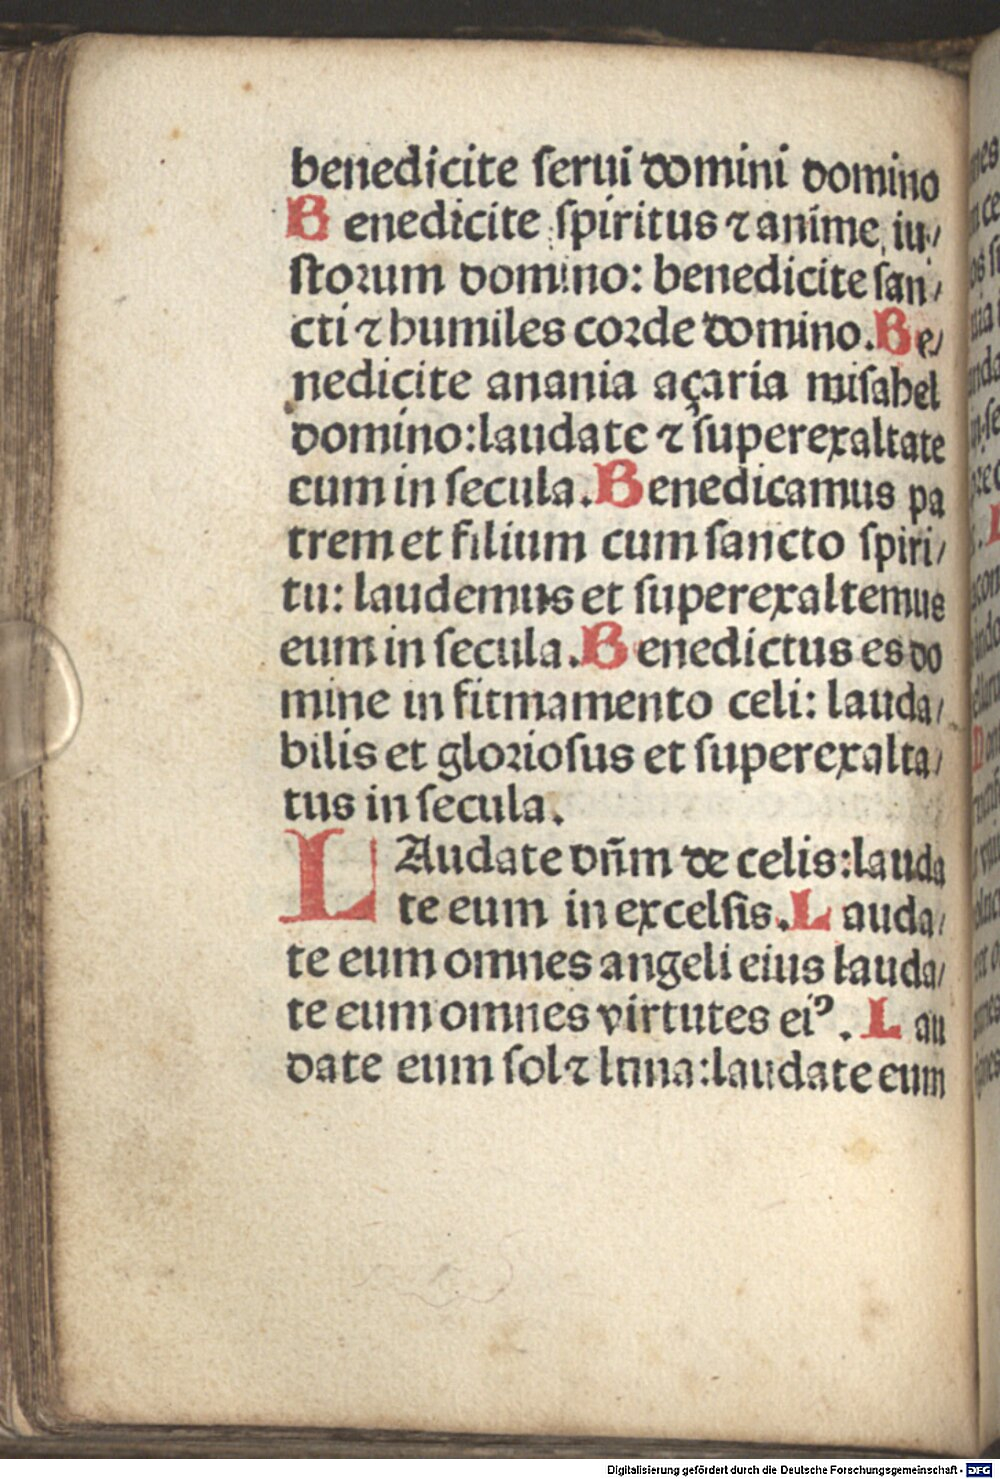 benedicite ſerui domini domino
Benedicite ſpiritus ⁊ anime iu/
ſtoꝛum domino: benedicite ſan/
cti ⁊ humiles coꝛde domino. Be/
nedicite anania açaria miſahel
domino: laudate ⁊ ſuperexaltate
eum in ſecula. Benedicamus pa
trem et filium cum ſancto ſpiri/
tu: laudemus et ſuperexaltemus
eum in ſecula. Benedictus es do
mine in fitmamento celi: lauda/
bilis et gloꝛioſus et ſuperexalta/
tus in ſecula.
LAudate dñm de celis: lauda
te eum in excelſis. Lauda/
te eum omnes angeli eius lauda/
te eum omnes virtutes eiꝰ. Lau
date eum ſol ⁊ luna: laudate eum
Digitalisierung gefördert durch die Deutsche Forschungsgemeinschaft - DFG